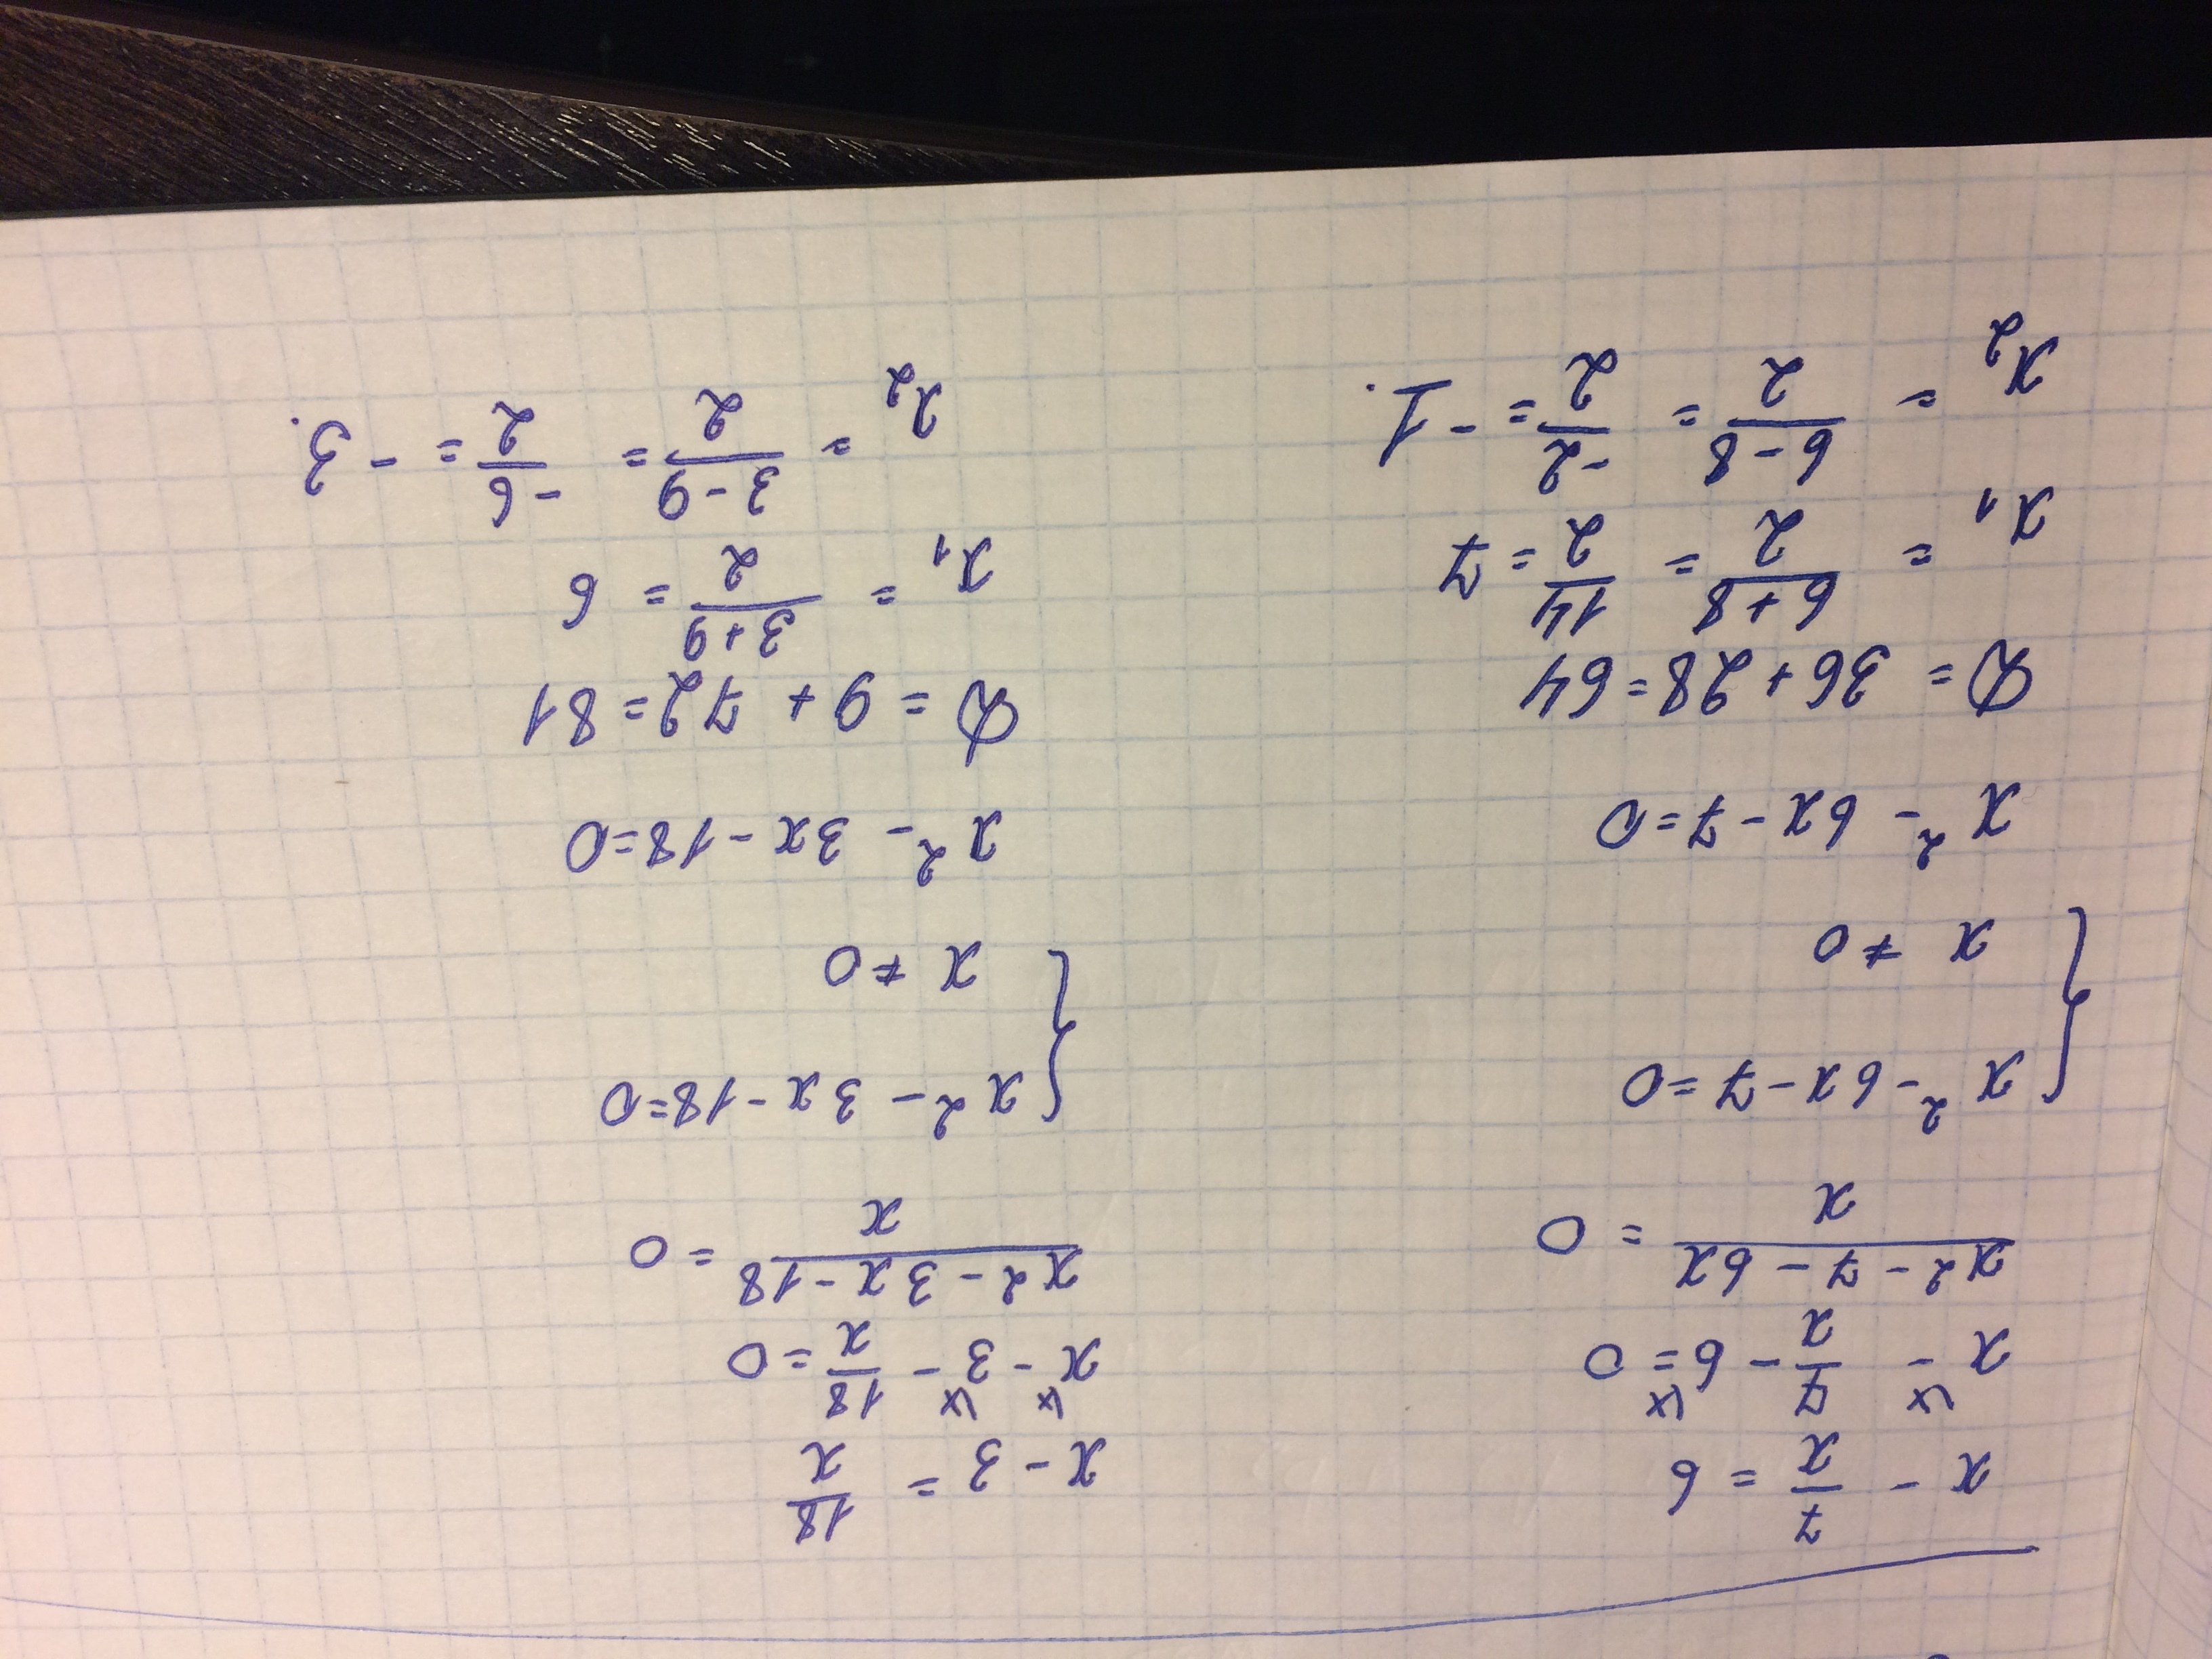 x - 7/x = 6
x - 7/x - 6 = 0
x² - 7 - 6x / x = 0
{ x² - 6x - 7 = 0
x ≠ 0
x² - 6x - 7 = 0
D = 36 + 28 = 64
x₁ = 6+8/2 = 14/2 = 7
x₂ = 6-8/2 = -2/2 = -1.
x - 3 = 18/x
x - 3 - 18/x = 0
x² - 3x - 18 / x = 0
{ x² - 3x - 18 = 0
x ≠ 0
x² - 3x - 18 = 0
D = 9 + 72 = 81
x₁ = 3+9/2 = 6
x₂ = 3-9/2 = -6/2 = -3.